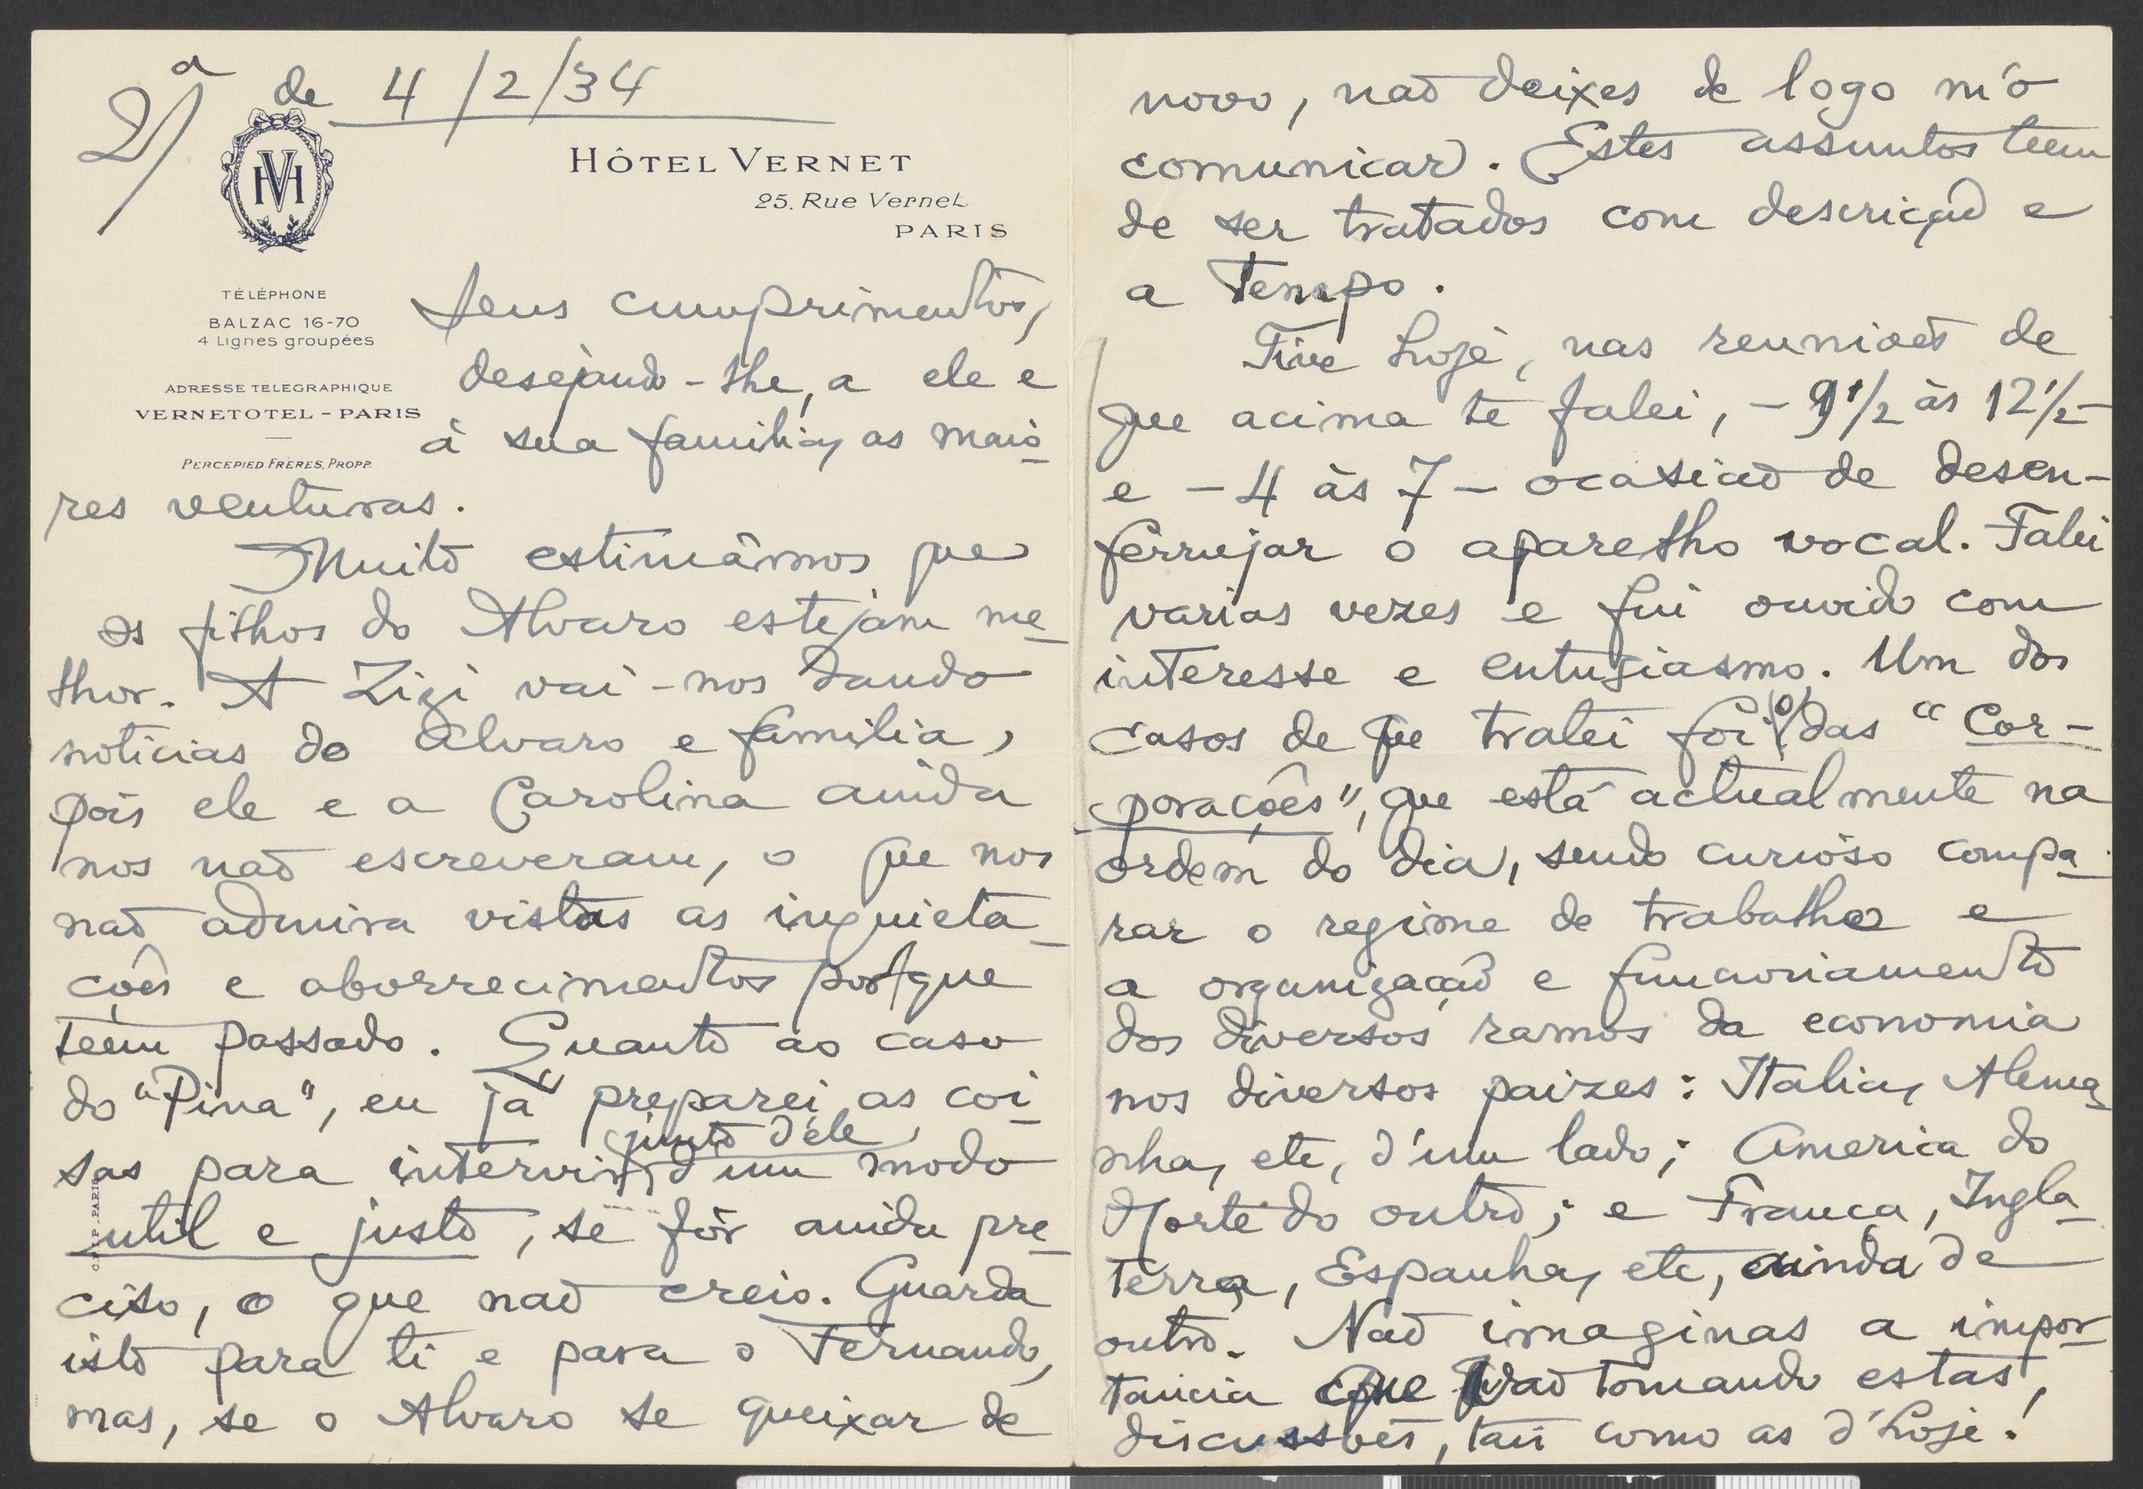 2ª de 4/2/34
HÔTEL VERNET
25. Rue Vernet
PARIS
TÉLÉPHONE
BALZAC 16-70
4 Lignes groupées
ADRESSE TELEGRAPHIQUE
VERNETOTEL - PARIS
PERCEPIED FRERES, PROPP.
seus cumprimentos,
desejando-lhe, a ele e
à sua familia, as maio-
res venturas.
Muito estimâmos que
os filhos do Alvaro estejam me-
lhor. A Zizi vai-nos dando
noticias do Alvaro e familia,
pois ele e a Carolina ainda
nos não escreveram, o que nos
não admira vistas as inquieta-
ções e aborrecimentos por que
teem passado. Quanto ao caso
do "Pina", eu já preparei as coi-
junto d'ele
sas para intervir, d'um modo
util e justo, se fôr ainda pre-
ciso, o que não creio. Guarda
isto para ti e para o Fernando,
mas, se o Alvaro se queixar de
novo, não deixes de logo m'o
comunicar. Estes assuntos teem
de ser tratados com descrição e
a tempo.
Tive hoje, nas reuniões de
que acima te falei, - 9 1/2 às 12 1/2 -
e - 4 às 7 - ocasião de desen-
ferrujar o aparelho vocal. Falei
varias vezes e fui ouvido com
interesse e entusiasmo. Um dos
casos de que tratei foi (o) das "Cor-
porações", que está actualmente na
ordem do dia, sendo curioso compa-
rar o regime de trabalho e
a organização e funcionamento
dos diversos ramos da economia
nos diversos paizes: Italia, Alema-
nha, etc, d'um lado; America do
Norte do outro; e França, Ingla-
terra, Espanha, etc, ainda de
outro. Não imaginas a impor-
tancia que vão tomando estas
discussões, tais como as d'hoje!